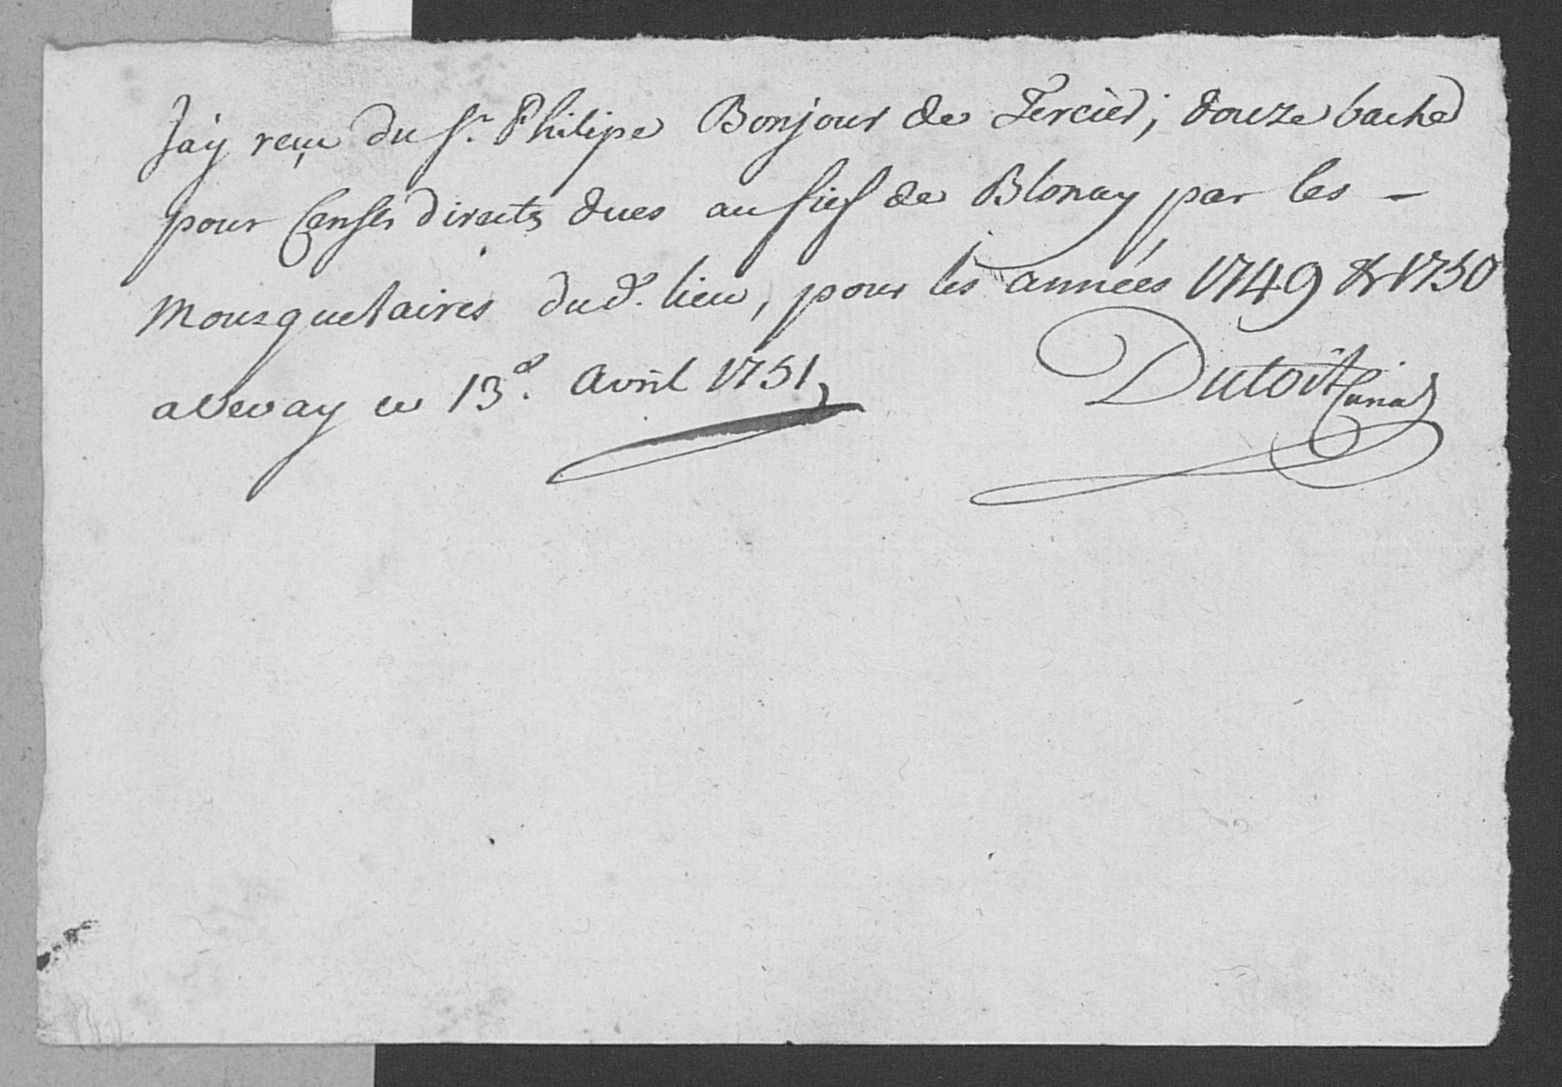 Jáy reçu du Sr. Philipe Bonjour de Tercier, douze bache
pour Censes directs dues au fief de Blonay par les -
Mousquetaires dud. lieu, pour les années 1749 & 1750
a Vevay ce 13e. Avril 1751,
Dutoit